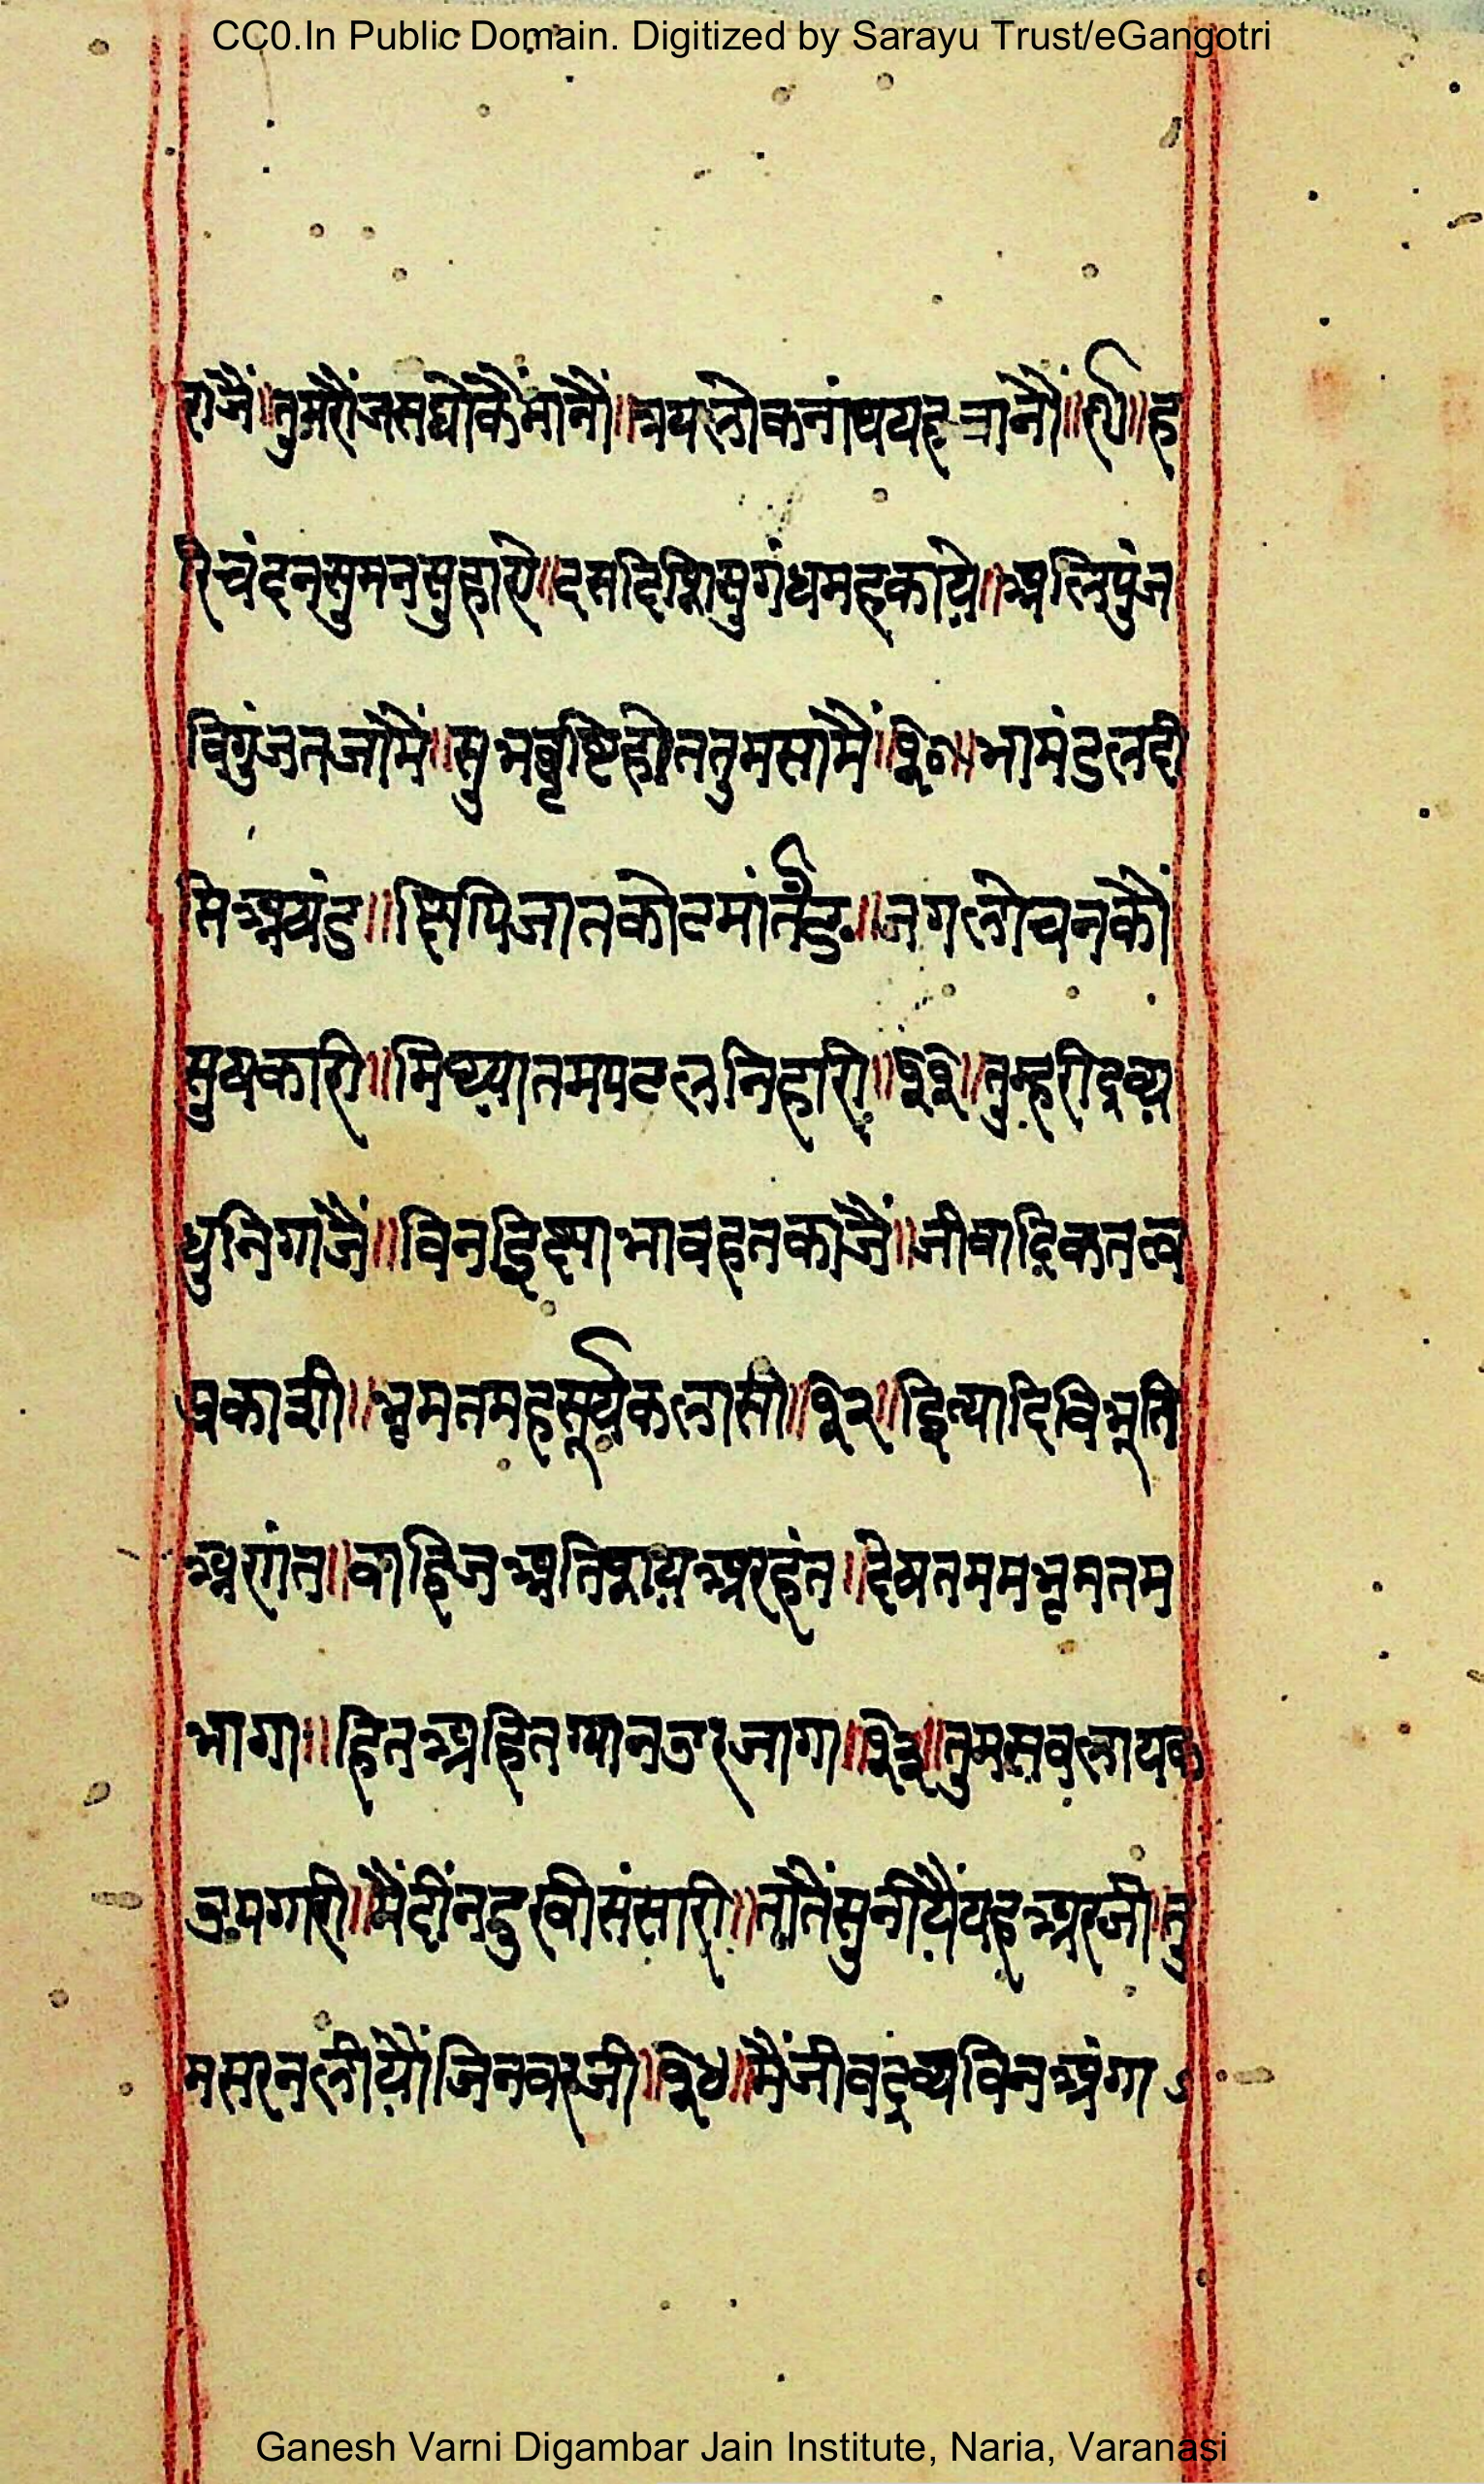 CC0.In Public Domain. Digitized by Sarayu Trust/eGangotri
राजैं॥तुमरौंजसघोकैंमांनौं॥त्रयलोकनांथयहजांनौं॥९॥ह
रिचंदनसुमनसुहाये॥दसदिशिसुगंधमहकाये॥अलिपुंज
विगुंजतजांमैं॥सुभबृष्टिहोततुमसांमैं॥३०॥भामंडलदी
प्तिअषंड॥छिपिजातकोटमांर्तंड॥जगलोचनकौं
सुषकारी॥मिथ्यातमपटलनिहारी॥३१॥तुम्हरीदिव्य
धुनिगाजैं॥विनइिछाभावहनकाजैं॥जीवादिकतत्व
प्रकाशी॥भ्रमतमहसूर्यकलासी॥३२॥इित्यादिविभूति
अनंत॥वाहिजअतिशयअरहंत॥देषतममभ्रमतम
भागा॥हितअहितग्यानउरजागा॥३३॥तुमसवलायक
उपगारी॥मैंदींनदुखीसंसारी॥तांतैंसुनीयैंयहअरजी॥तु
मसरनलीयौंजिनवरजी॥३४॥मैंजीवद्रव्यविनअंगा
Ganesh Varni Digambar Jain Institute, Naria, Varanasi